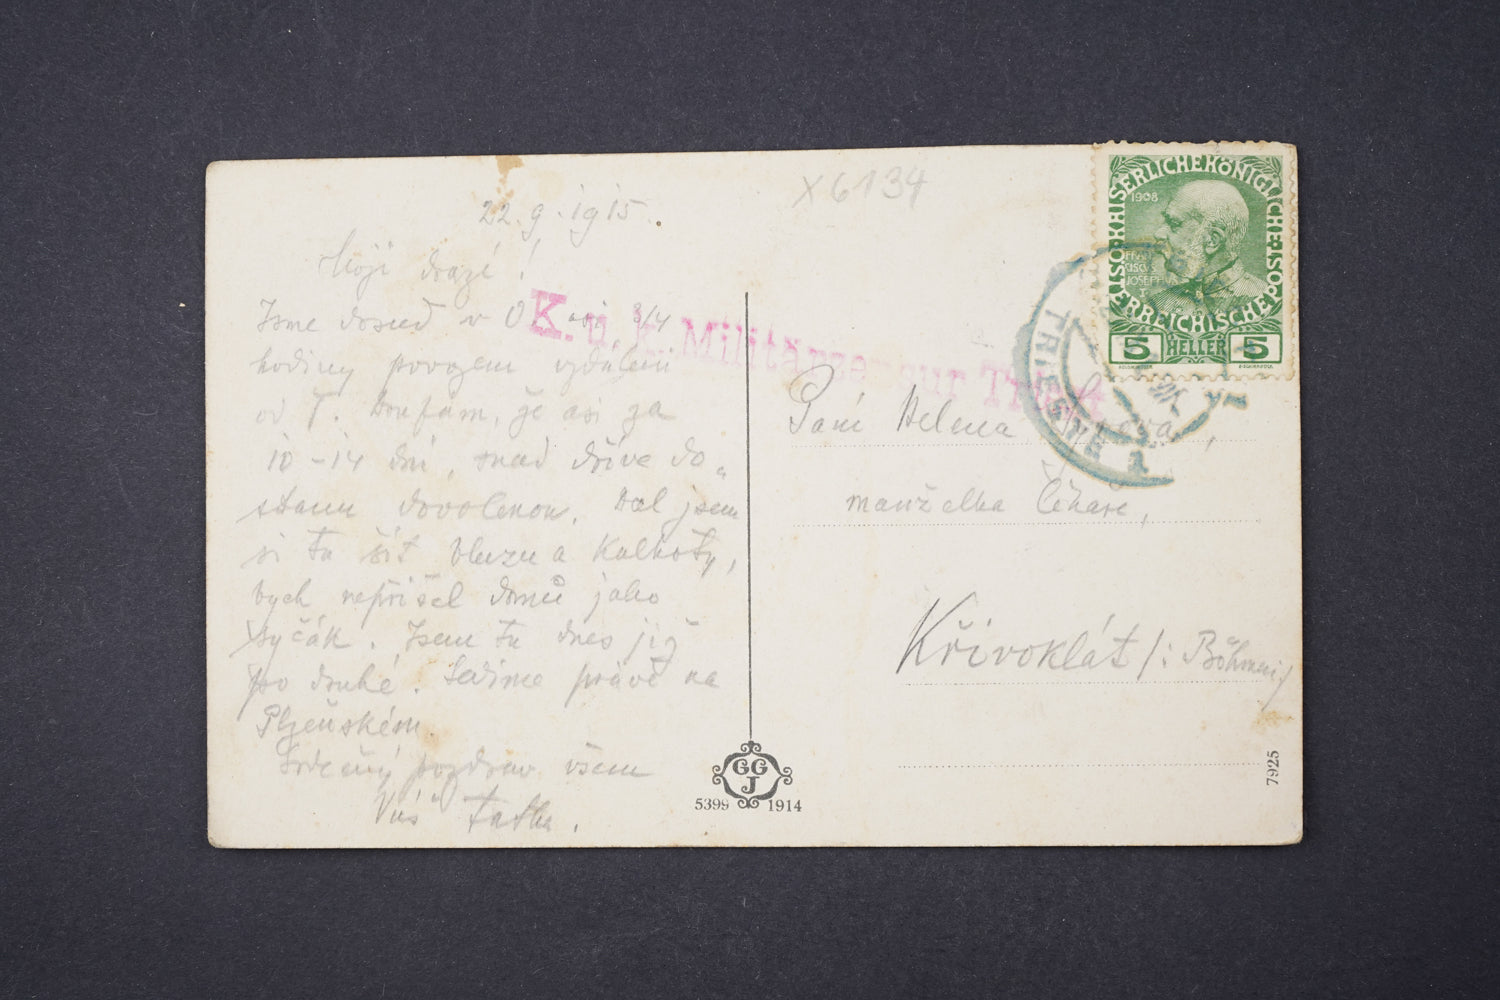 X 6134
22. 9. 1915.
Moji drazí!
Jsme dosud v O. asi 3/4
hodiny povozem vzdáleni
od T. Doufám, že asi za
10–14 dní, snad dříve do„
stanu dovolenou. Dal jsem
si tu šít bluzu a kalhoty,
bych nepřišel domů jako
syčák. Jsem tu dnes již
po druhé. Sedíme právě na
Plzeňském.
Srdečný pozdrav všem
Váš Tatka.
K. u. k. Militärzensur Triest
KAISERLICHE KÖNIGLICHE ÖSTERREICHISCHE
1908
FRANCISCO JOSEPHVS I
5 HELLER 5
TRIEST
1
Paní Helena
manželka lékaře,
Křivoklát /: Böhmen :/
GGJ
5399 1914
7925